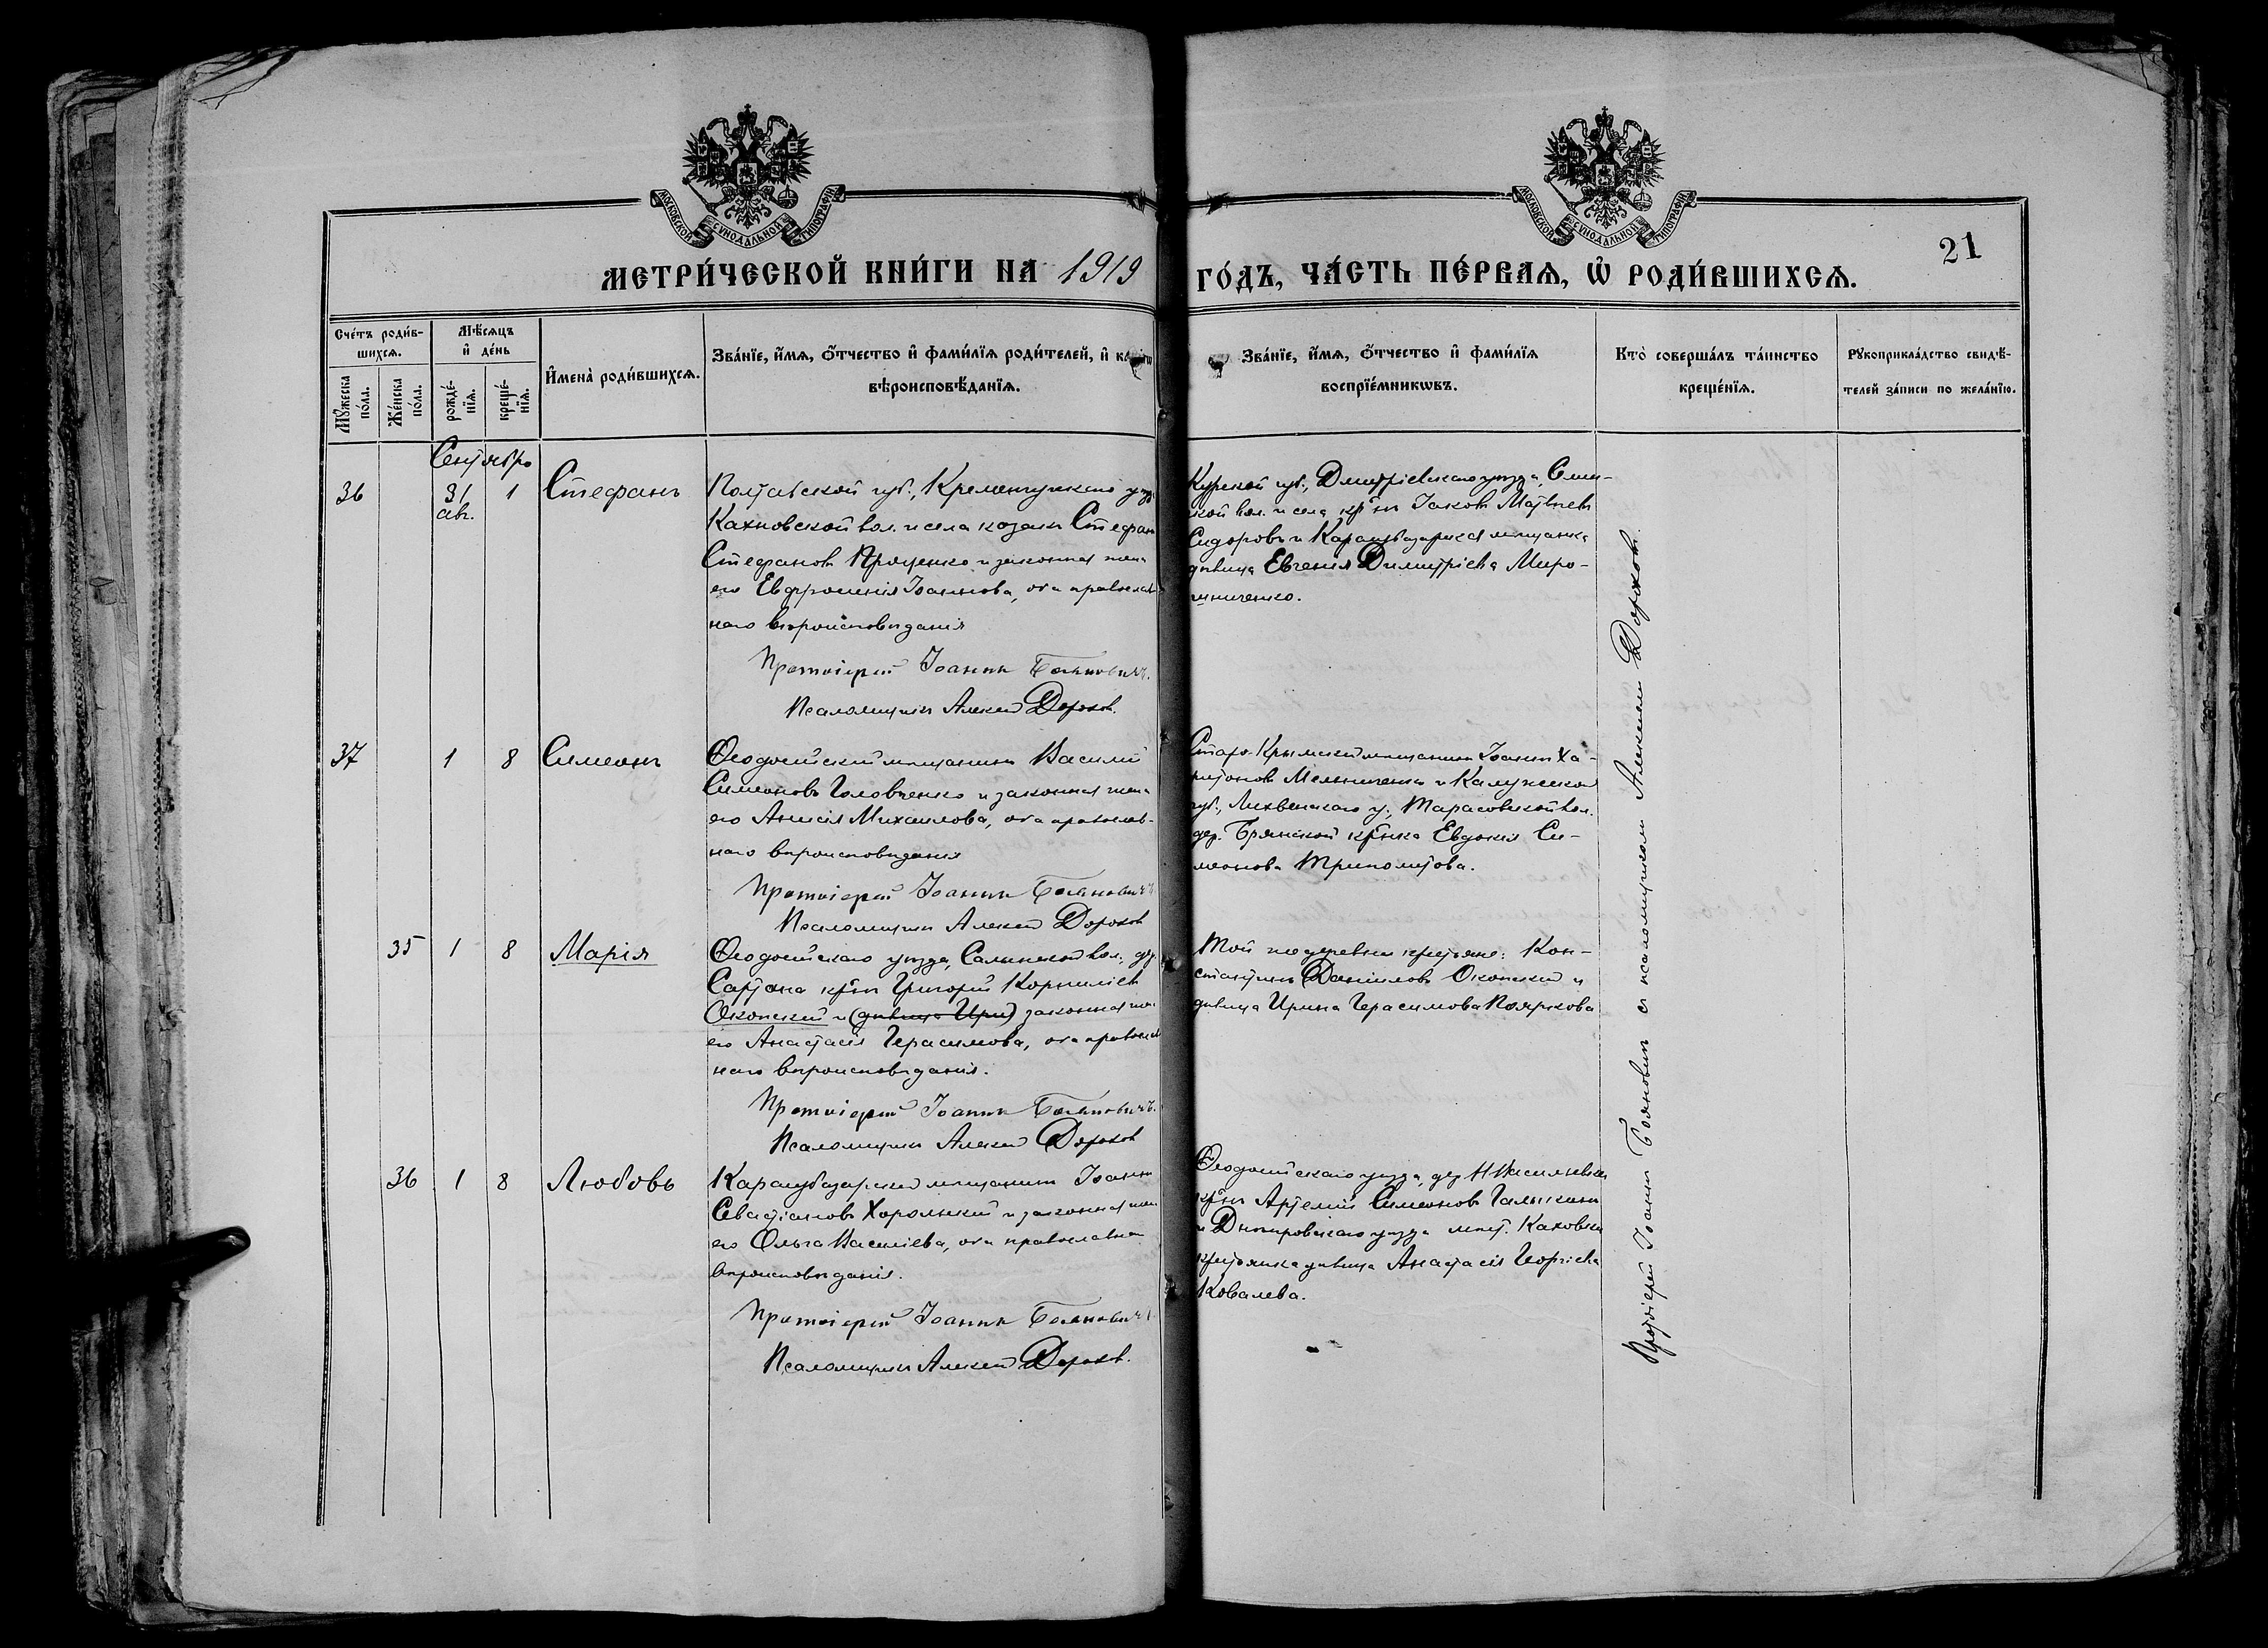 МОСКОВСКОЙ СѴНОДАЛЬНОЙ ТИПОГРАФІИ
МОСКОВСКОЙ СѴНОДАЛЬНОЙ ТИПОГРАФІИ
21
МЕТРИ́ЧЕСКОЙ КНИ́ГИ НА 1919 ГО́ДЪ, ЧА́СТЬ ПЕ́РВАЯ, Ѽ РОДИ́ВШИХСѦ.
Сче́тъ роди́в-
шихсѧ.
Мꙋ́жеска по́ла.
Же́нска по́ла.
Мѣ́сяцъ
и҆ де́нь
рожде́-
нїѧ.
креще́-
нїѧ.
И҆мена̀ роди́вшихсѧ.
Зва́нїе, и҆́мѧ, ѻ҆́тчество и҆ фами́лїѧ роди́телей, и҆
вѣроисповѣ́данїѧ.
Зва́нїе, и҆́мѧ, ѻ҆́тчество и҆ фами́лїѧ
воспрїе́мникѡвъ.
Кто̀ соверша́лъ та́инство
креще́нїѧ.
Рꙋкоприкла́дство свидѣ́-
телей за́писи по жела́нїю.
Сентябрь
36 31 авг. 1 Стефанъ
Полтавской губ., Кременчугскаго
Кахновской вол. и села козакъ Стефанъ
Стефановъ и законная жена
его Евфросинія Іоаннова, оба православ-
наго вѣроисповѣданія
Протоіерей Іоаннъ Бояновичъ.
Псаломщикъ Алексѣй Дороховъ.
Курской губ., Дмитріевскаго уѣзда,
кой вол. и села кр-нъ Іаковъ Матвѣевъ
Сидоровъ и Карасубазарская мѣщанка
дѣвица Евгенія Димитріева Миро-
шниченко.
37 1 8 Симеонъ
Ѳеодосійскій мѣщанинъ Василій
Симеоновъ Головченко и законная жена
его Анисія Михаилова, оба православ-
наго вѣроисповѣданія
Протоіерей Іоаннъ Бояновичъ.
Псаломщикъ Алексѣй Дороховъ
Старо-Крымскій мѣщанинъ Іоаннъ Ха-
ритоновъ Мельниченко и Калужской
губ., Лихвенскаго у., Тарасовской вол.
дер. Брянской кр-нка Евдокія Си-
меонова Триполитова.
35 1 8 Марія
Ѳеодосійскаго уѣзда, Салынской вол., дер.
Сартана кр-нъ Григорій Корниліевъ
Оконскій и (дѣвица Ири) законная жена
его Анастасія Герасимова, оба православ
наго вѣроисповѣданія.
Протоіерей Іоаннъ Бояновичъ.
Псаломщикъ Алексѣй Дороховъ
Той же деревни крестьяне: Кон-
стантинъ Даніиловъ Оконскій и
дѣвица Ирина Герасимова Пояркова
36 1 8 Любовь
Карасубазарскій мѣщанинъ Іоаннъ
Севастіановъ Хорольскій и законная жена
его Ольга Василіева, оба православнаго
вѣроисповѣданія.
Протоіерей Іоаннъ Бояновичъ
Псаломщикъ Алексѣй Дороховъ.
Ѳеодосійскаго уѣзда, дер. Н Васильевки
кр-нъ Артемій Симеоновъ Галыкинъ
и Днѣпровскаго уѣзда мѣст. Каховки
крестьянка дѣвица Анастасія Георгіева
Ковалева.
Протоіерей Іоаннъ Бояновичъ съ псаломщикомъ Алексѣемъ Дороховымъ